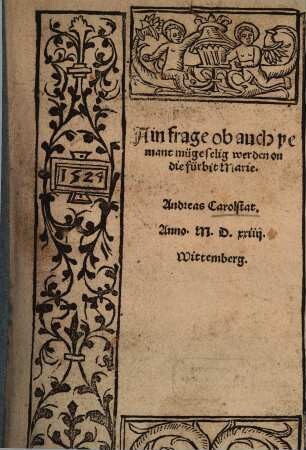 Ain frage ob auch ye
mant müge selig werden on
die fürbit Marie.
1524
Andreas Carolstat.
Anno. M. D. xxiiij.
Wittemberg.